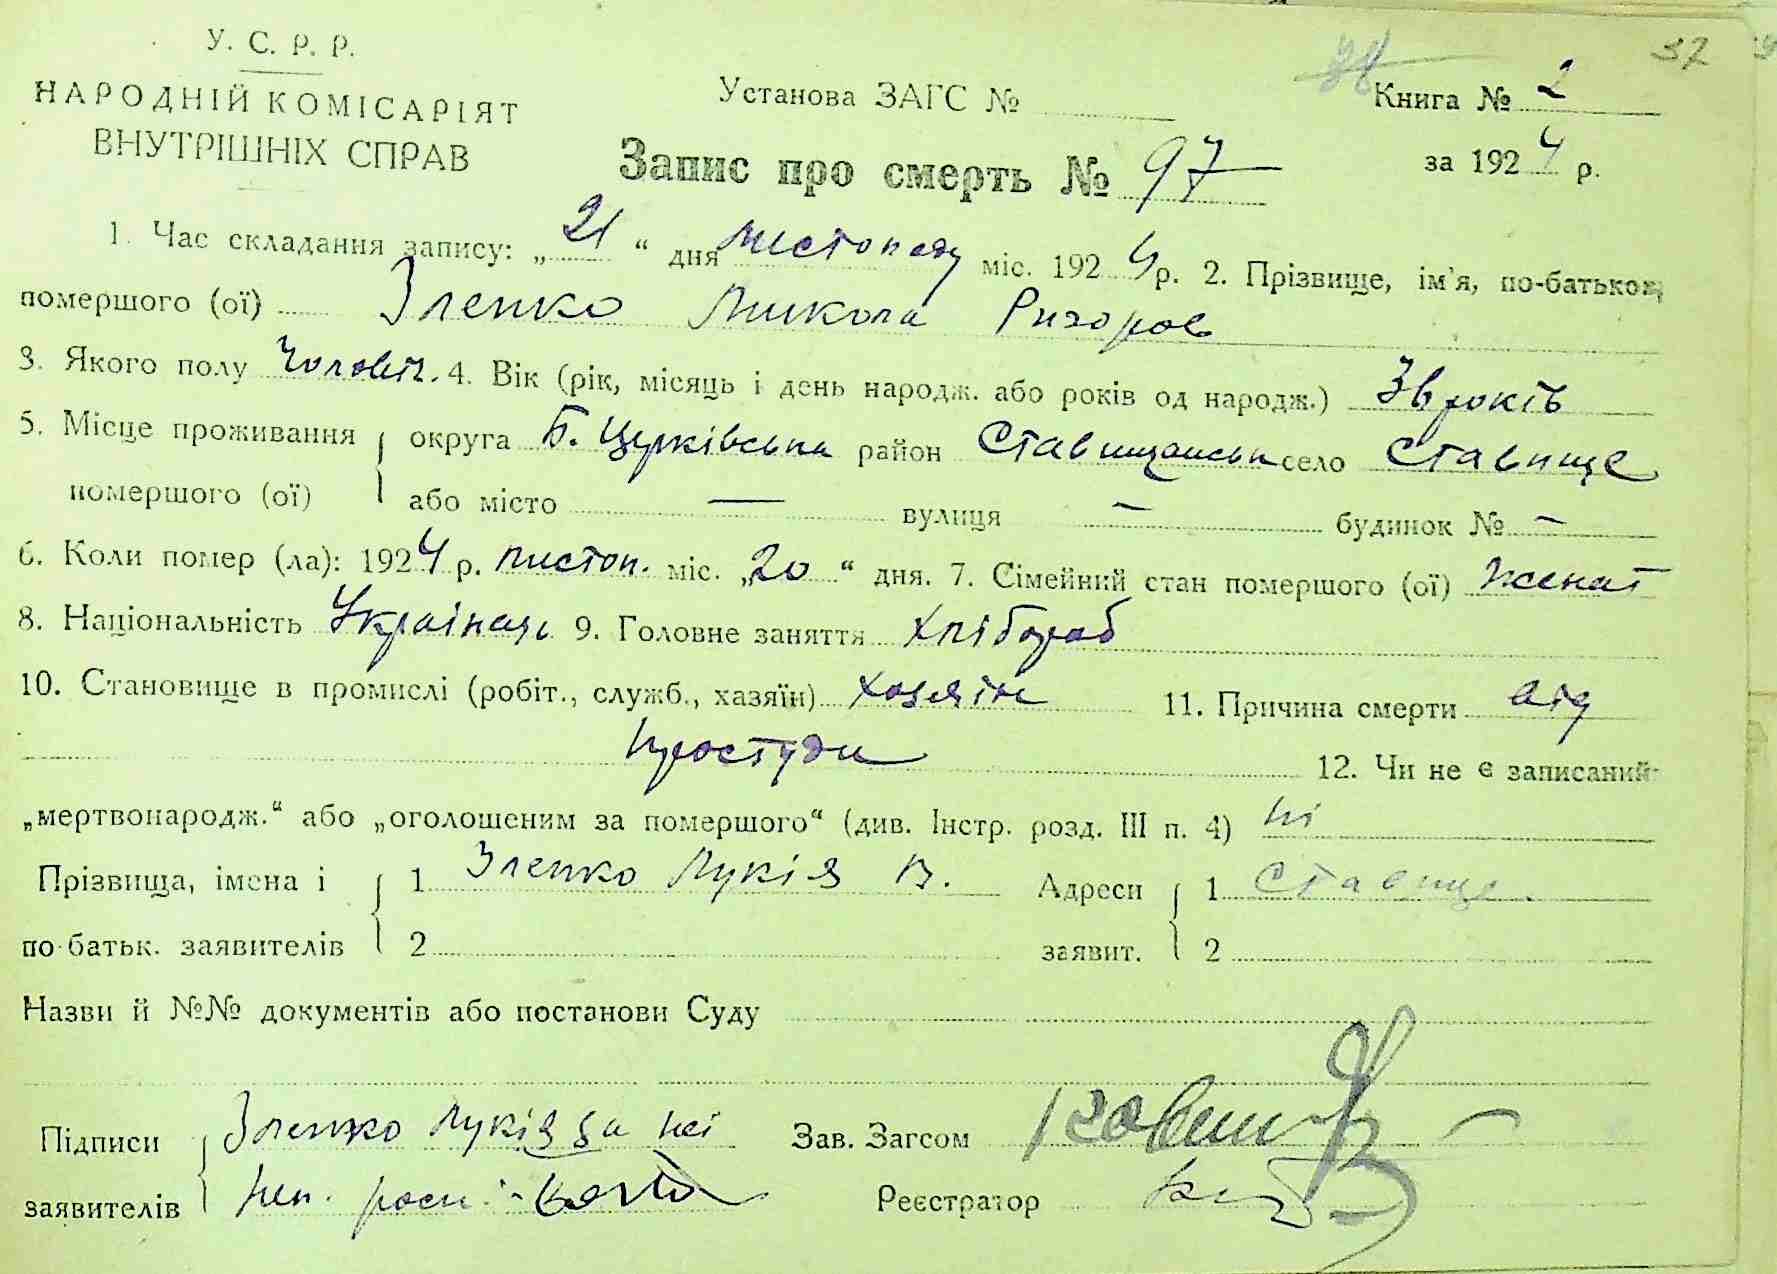 У. С. Р. Р.
НАРОДНІЙ КОМІСАРІЯТ
ВНУТРІШНІХ СПРАВ
Установа ЗАГС №
37
Книга № 2
за 1924 р.
Запис про смерть № 97
1. Час складання запису: „21“ дня листопаду міс. 1924 р. 2. Прізвище, ім'я, по-батькові
помершого (ої) Зленко Микола Ригоров
3. Якого полу Чоловіч. 4. Вік (рік, місяць і день народж. або років од народж.) 36 років
5. Місце проживання помершого (ої) округа Б. Церківська район Ставищанськ село Ставище
або місто — вулиця — будинок № —
6. Коли помер (ла): 1924 р. листоп. міс. „20“ дня. 7. Сімейний стан помершого (ої) Женат
8. Національність Українець 9. Головне заняття Хлібороб
10. Становище в промислі (робіт., служб., хазяїн) Хозяін 11. Причина смерти від
простуди 12. Чи не є записаний
„мертвонародж.“ або „оголошеним за помершого“ (див. Інстр. розд. III п. 4) ні
Прізвища, імена і по-батьк. заявителів 1 Зленко Лукія В. Адреси заявит. 1 Ставище.
2 2
Назви й №№ документів або постанови Суду
Підписи заявителів Зленко Лукія за неі
неп. росп.
Зав. Загсом
Реєстратор